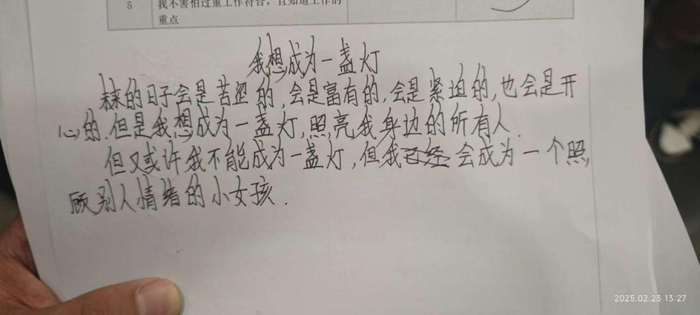 5 我不害怕过重工作符合，且知道工作的
重点
我想成为一盏灯
未来的日子会是苦涩的,会是富有的,会是紧迫的,也会是开
心的,但是我想成为一盏灯,照亮我身边的所有人.
但又或许我不能成为一盏灯,但我已经会成为一个照,
顾别人情绪的小女孩.
2025.02.23 13:27